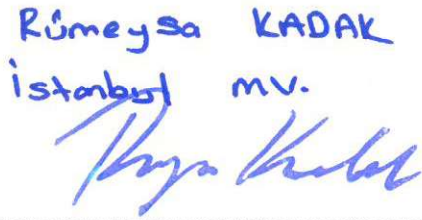 Rümeysa KADAK
İstanbul mv.